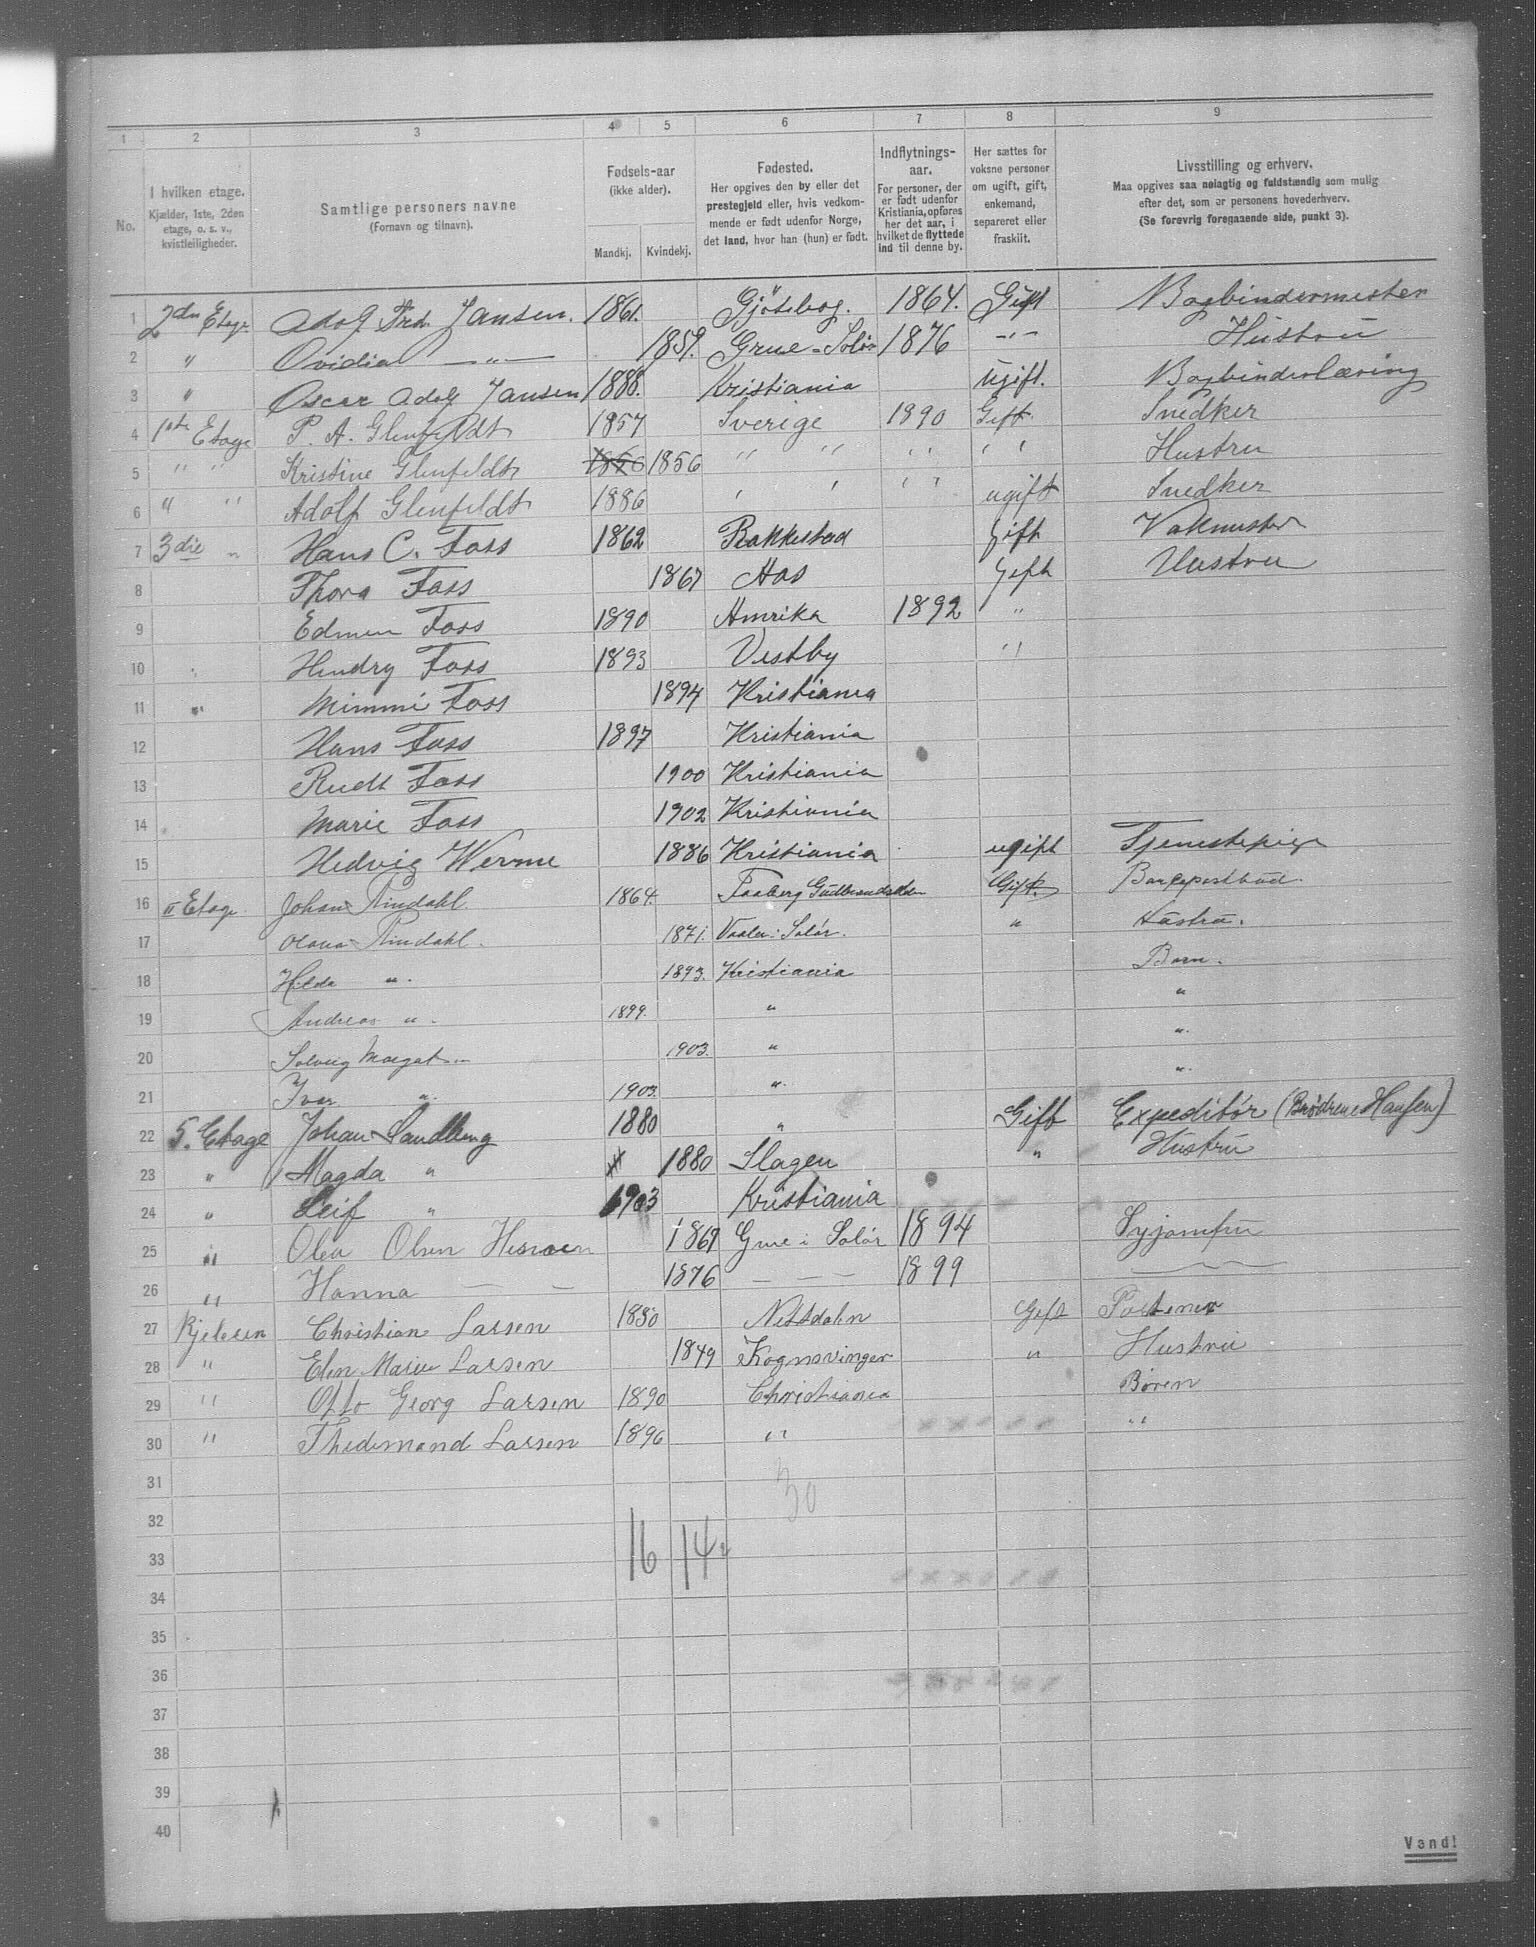 1 2 3 4 5 6 7 8 9
No.
I hvilken etage.
Kjælder, 1ste, 2den
etage, o. s. v.,
kvistleiligheder.
Samtlige personers navne
(Fornavn og tilnavn).
Fødsels-aar
(ikke alder).
Mandkj. Kvindekj.
Fødested.
Her opgives den by eller det
prestegjeld eller, hvis vedkom-
mende er født udenfor Norge,
det land, hvor han (hun) er født.
Indflytnings-
aar.
For personer, der
er født udenfor
Kristiania, opføres
her det aar, i
hvilket de flyttede
ind til denne by.
Her sættes for
voksne personer
om ugift, gift,
enkemand,
separeret eller
fraskilt.
Livsstilling og erhverv.
Maa opgives saa nøiagtig og fuldstændig som mulig
efter det, som er personens hovederhverv.
(Se forøvrig foregaaende side, punkt 3).
1 2den Etage Adolf Fred. Jansen. 1861. Gjøteborg. 1864. Gift Bogbindermester
2 " Ovidia —"— 1859. Grue-Solør 1876 -"- Hustru
3 " Oscar Adolf Jansen 1888. Kristiania ugift. Bogbinderlæring
4 1ste Etage P. A. Glenfeldt 1857 Sverige 1890 Gift Snedker
5 " " Kristine Glenfeldt 1856 1856 " " " " " " Hustru
6 " " Adolf Glenfeldt 1886 " " " " ugift Snedker
7 3die " Hans C. Foss 1862 Rakkestad Gift Vakmester
8 Thora Foss 1867 Aas Gift Hustru
9 Edmun Foss 1890 Amrika 1892 "
10 Hendry Foss 1893 Vestby "
11 " Mimmi Foss 1894 Kristiania
12 Hans Foss 1897 Kristiania
13 Rudt Foss 1900 Kristiania
14 Marie Foss 1902 Kristiania
15 Hedvig Werme 1886 Kristiania ugift Tjenestepige
16 II Etage. Johan Rindahl 1864. Faaberg Gudbrandsdalen Gift. Bankpostbud.
17 Olava Rindahl. 1871. Vaaler i Solør. " Hustru.
18 Hilda ". 1893. Kristiania Barn.
19 Andreas ". 1899. " "
20 Solveig Margat " 1903. " ".
21 Iver ". 1903. ". ".
22 5. Etage Johan Sandberg 1880 " Gift Expeditør (Brødrene Hansen)
23 " Magda " 1880 Slagen " Hustru
24 " Leif " 1903 Kristiania
25 " Olea Olsen 1869 Grue i Solør 1894 Syjomfru
26 " Hanna — — 1876 — — — 1899
27 Kjeleren Christian Larsen 1850 Nitsdalen Gift
28 " Elen Marie Larsen 1849 Kognsvinger " Hustru
29 " Otto Georg Larsen 1890 Christiania Børen
30 " Thidemand Larsen 1896 " "
31 30
32
33 16 14
34
35
36
37
38
39
40
Vend!